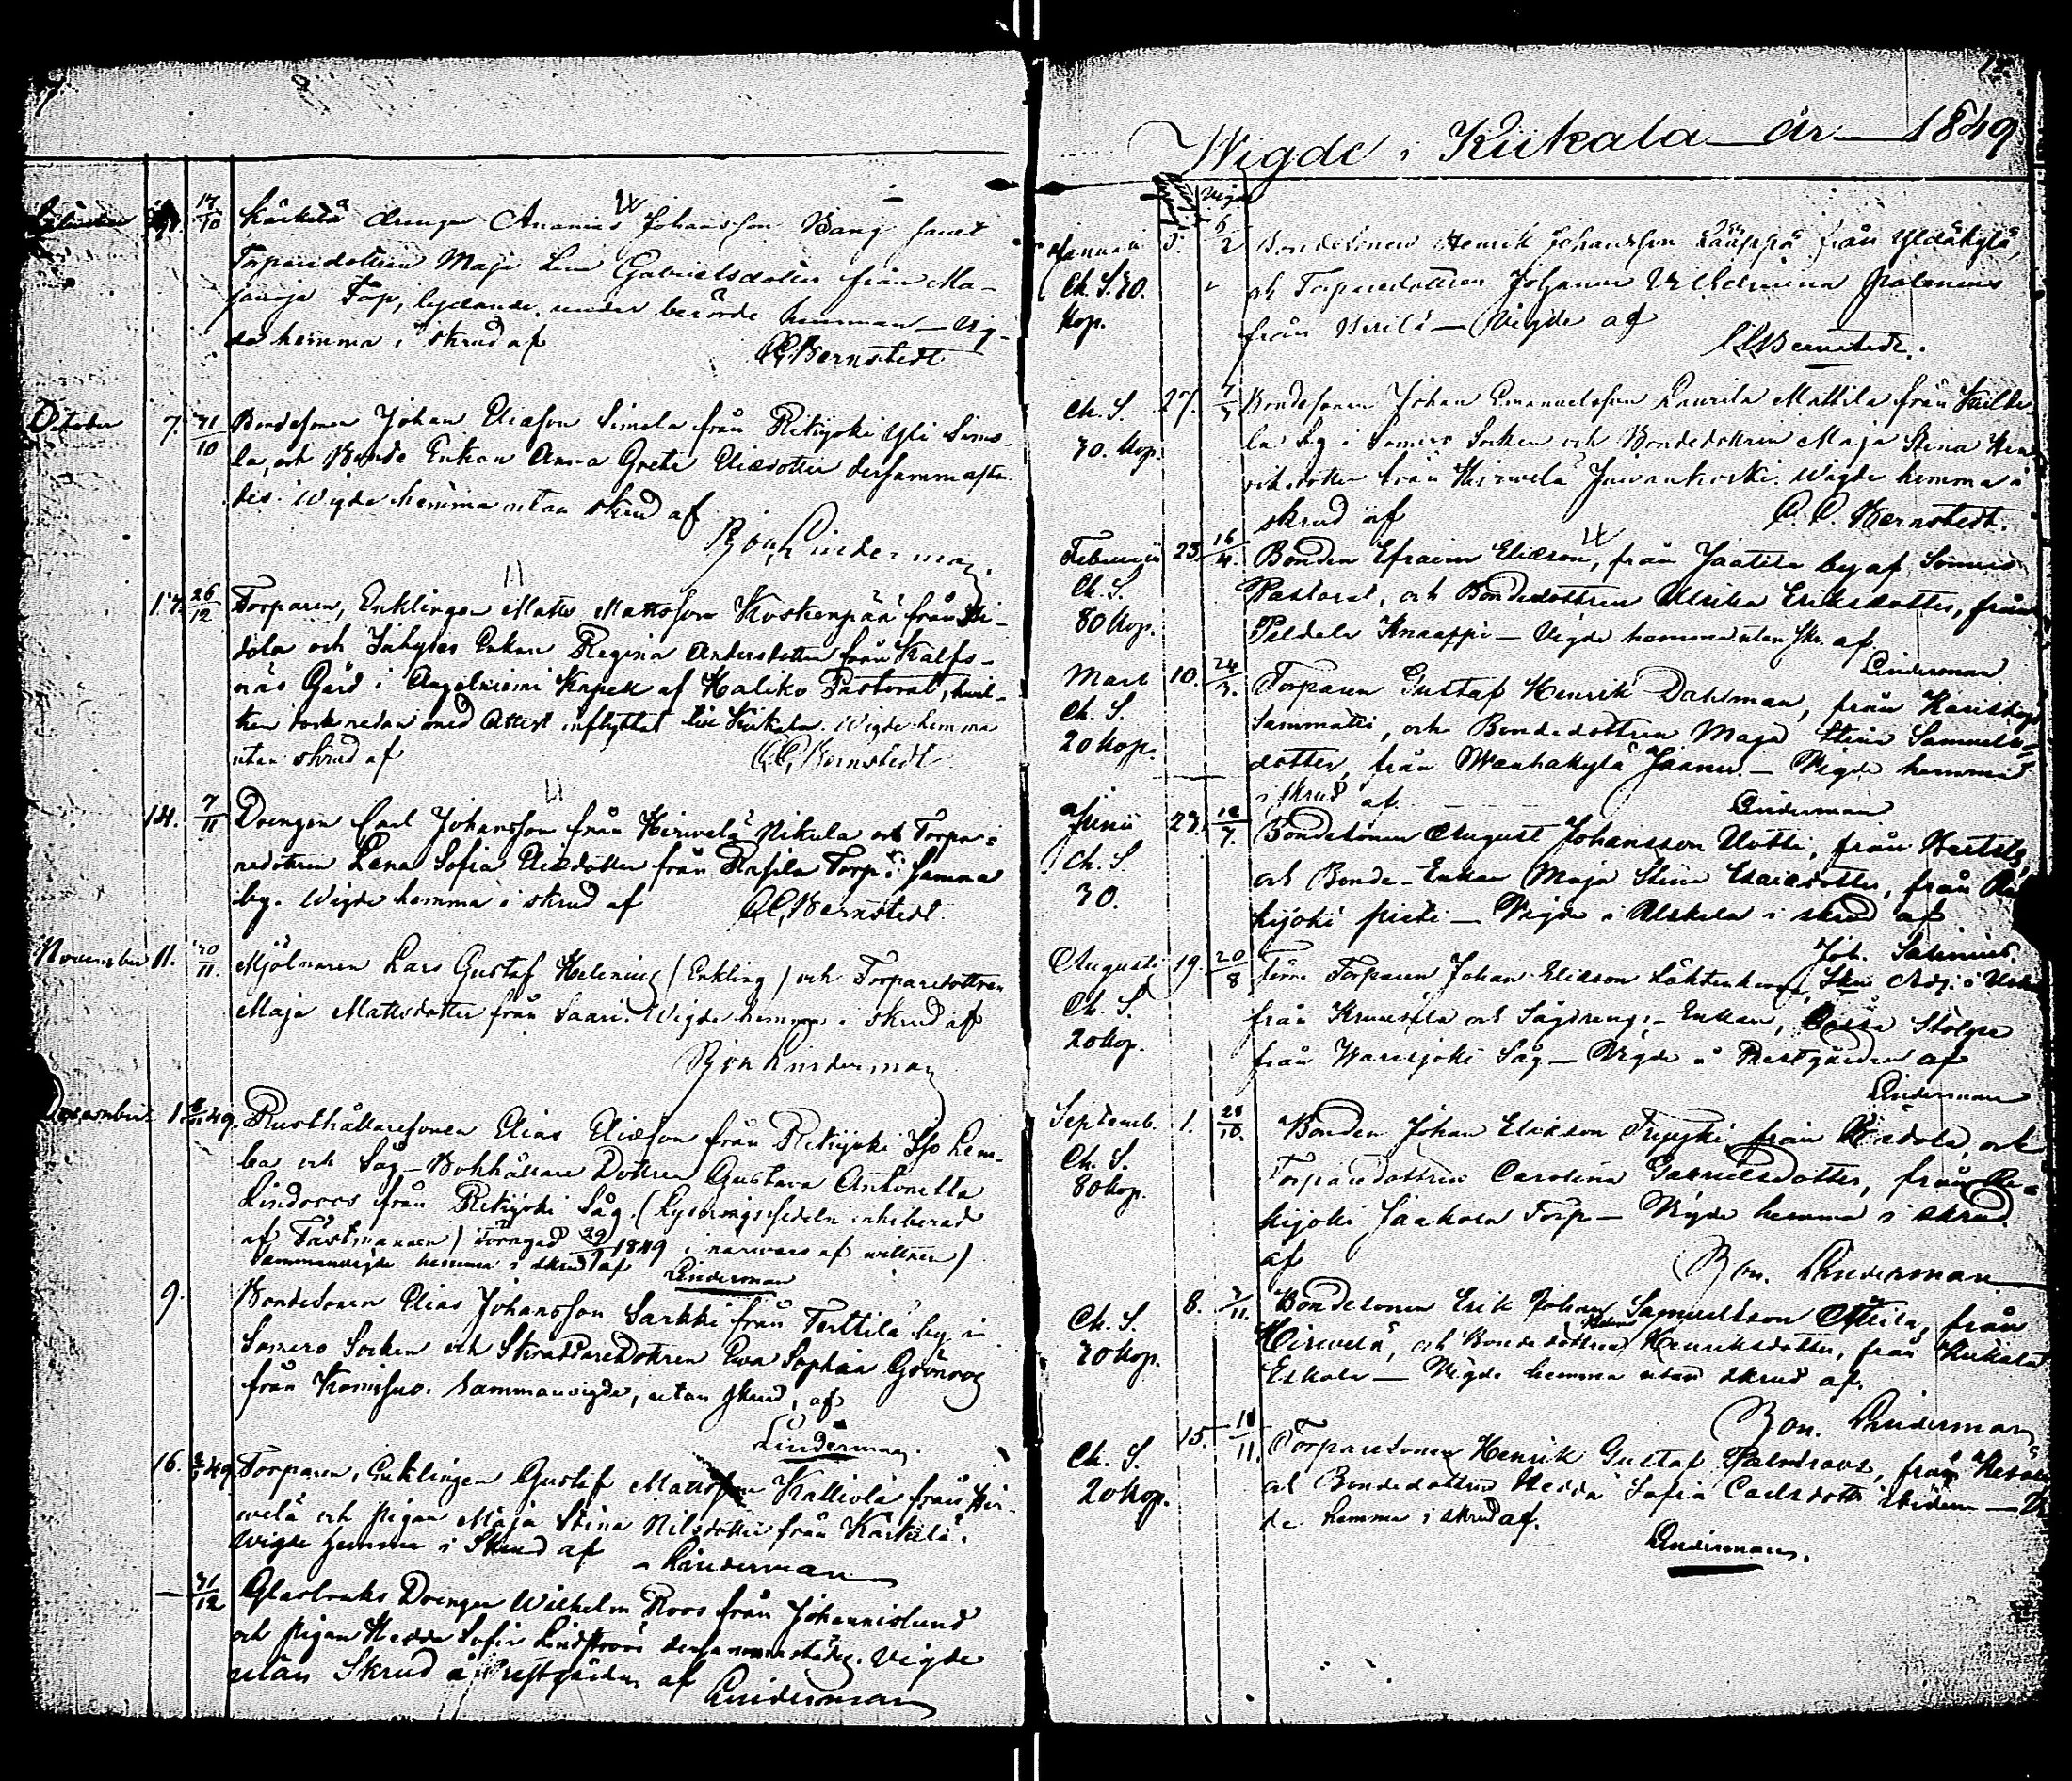 17/10 Kärkelä drengen Ananias Johansson Wang samt
Torparedottren Maja Lena Gabrielsdotter från Ma-
Torp, lydande under berörde hemman — Vig-
de hemma i skrud af
C. C. Bernstedt
October 7. 21/10 Bondesonen Johan Eliæson Simola från Rekijoki Yli Simo-
la, och Bonde Enkan Anna Greta Eliædotter dersammastä-
des. Wigde hemma utan skrud af
Björklinderman
14. 26/12 Torparen, Enklingen Matts Mattsson Koskenpää från Hi-
dola och Inhyses Enkan Regina Andersdotter från Kalfs-
näs Gård i Angelniemi Kapell af Haliko Pastorat, hvil-
ken med Attest inflyttat till Kiikala. Wigde hemma
utan skrud af C. C. Bernstedt
14. 7/11 Drengen Carl Johansson från Hirvelä Nikula och Torpa-
redottren Lena Sofia Eliædotter från Rasila Torp i samma
by. Wigde hemma i skrud af C. C. Bernstedt.
November 11. 30/11 Mjölnaren Lars Gustaf Helenius (Enkling) och Torparedottren
Maja Mattsdotter från Saari. Wigde hemma i skrud af
Björklinderman
December 1. 49. Rusthållaresonen Elias Eliæson från Rekijoki Iso Hem-
ba och Såg-Bokhållare Dottren Gustava Antonetta
Lindroos från Rekijoki Såg. (Lysningssedeln inhiberad
af Fästmannen) Förnyad 29/9 1849 i närvaro af vittnen)
Sammanvigde hemma i skrud af Linderman
9. Bondesonen Elias Johansson Sarkki från Terttilä by i
Somero Socken och Skräddaredottren Eva Sophia Grönroos
från Komisuo. Sammanvigde, utan skrud, af
Linderman.
16. 49. Torparen, Enklingen Gustaf Mattsson Kalliola från Hir-
velä och pigan Maja Stina Nilsdotter från Kärkelä.
Wigde hemma i Skrud af Linderman
— 31/12 Glasbruks Drengen Wilhelm Roos från Johannislund
och pigan Hedda Sofia Lindström dersammastädes. Vigde
utan Skrud å Prestgården af Linderman
Wigde i Kiikala år 1849
Vigde
Januarii 5. 6/2 Bondesonen Henrik Johansson Kääppä från Yldäkylä,
Ch. S. 70. och Torparedottren Johanna Wilhelmina Palenius
Kop. från Virilä — Vigde af
C C Bernstedt.
Ch. S. 27. Bondesonen Johan Emanuelsson Laurila Mattila från
70. Kop. la by i Somero Socken och Bondedottren Maja Stina Hen-
riksdotter från Hirvelä Juvankoski. Wigde hemma i
skrud af C. C. Bernstedt.
Februarii 23. 16/4. Bonden Efraim Eliæson, från Jaatila by af Somero
Ch. S. Pastorat, och Bondedottren Ulrika Eriksdotter, från
80 Kop. Peldola Knaappi — Vigde hemma utan skr. af
Linderman
Mart 10. 24/3. Torparen Gustaf Henrik Dahlman, från Karislojo
Ch. S. Sammatti, och Bondedottren Maja Stina Samuels-
20 Kop. dotter, från Wanhakylä Jaanu. — Vigde hemma
i skrud af. Linderman
Junii 23. 12/7. Bondesonen August Johansson Uotti, från
Ch. S. och Bonde-Enkan Maja Stina Esaiædotter, från Re-
30. kijoki — Vigde i Uskela i skrud af
Joh. Salenius.
Augusti 19. 20/8 Förre Torparen Johan Eliæson Lähteenkorva Adj. i Uskela
Ch. S. från Kruusila och Sågdreng:-Enkan, Stolpe
20 Kop. från Warisjoki Såg — Vigde å Prestgården af
Linderman
Septemb. 1. 28/10. Bonden Johan Eliæson från Hidola, och
Ch. S. Torparedottren Carolina Gabrielsdotter, från Re-
80 Kop. kijoki Jaakola Torp — Vigde hemma i skrud
af
Bon. Linderman
Ch. S. 8. 2/11. Bondesonen Erik Johan Samuelsson Attila, från
70 Kop. Hirvelä, och Bondedottren Henriksdotter, från Kiikala
Eskola — Vigde hemma utan skrud af.
Bon. Linderman
Ch. S. 15. 18/11. Torparesonen Henrik Gustaf Palmroos, från
20 Kop. och Bondedottren Hedda Sofia Carlsdotter ibidem — Vig-
de hemma i skrud af.
Linderman.